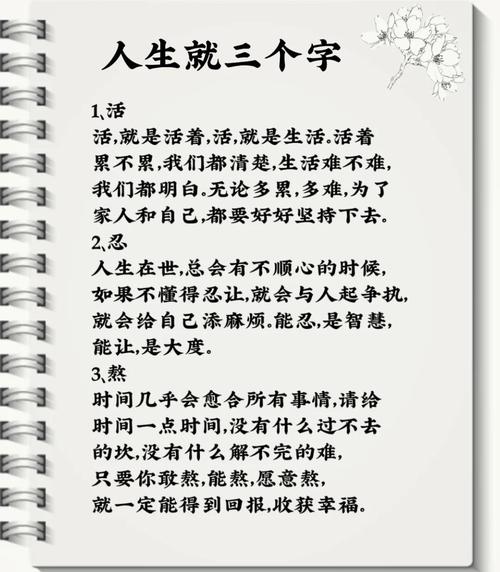 人生就三个字
1、活
活,就是活着,活,就是生活。活着
累不累,我们都清楚,生活难不难,
我们都明白。无论多累,多难,为了
家人和自己,都要好好坚持下去。
2、忍
人生在世,总会有不顺心的时候,
如果不懂得忍让,就会与人起争执,
就会给自己添麻烦。能忍,是智慧,
能让,是大度。
3、熬
时间几乎会愈合所有事情,请给
时间一点时间,没有什么过不去
的坎,没有什么解不完的难,
只要你敢熬,能熬,愿意熬,
就一定能得到回报,收获幸福。